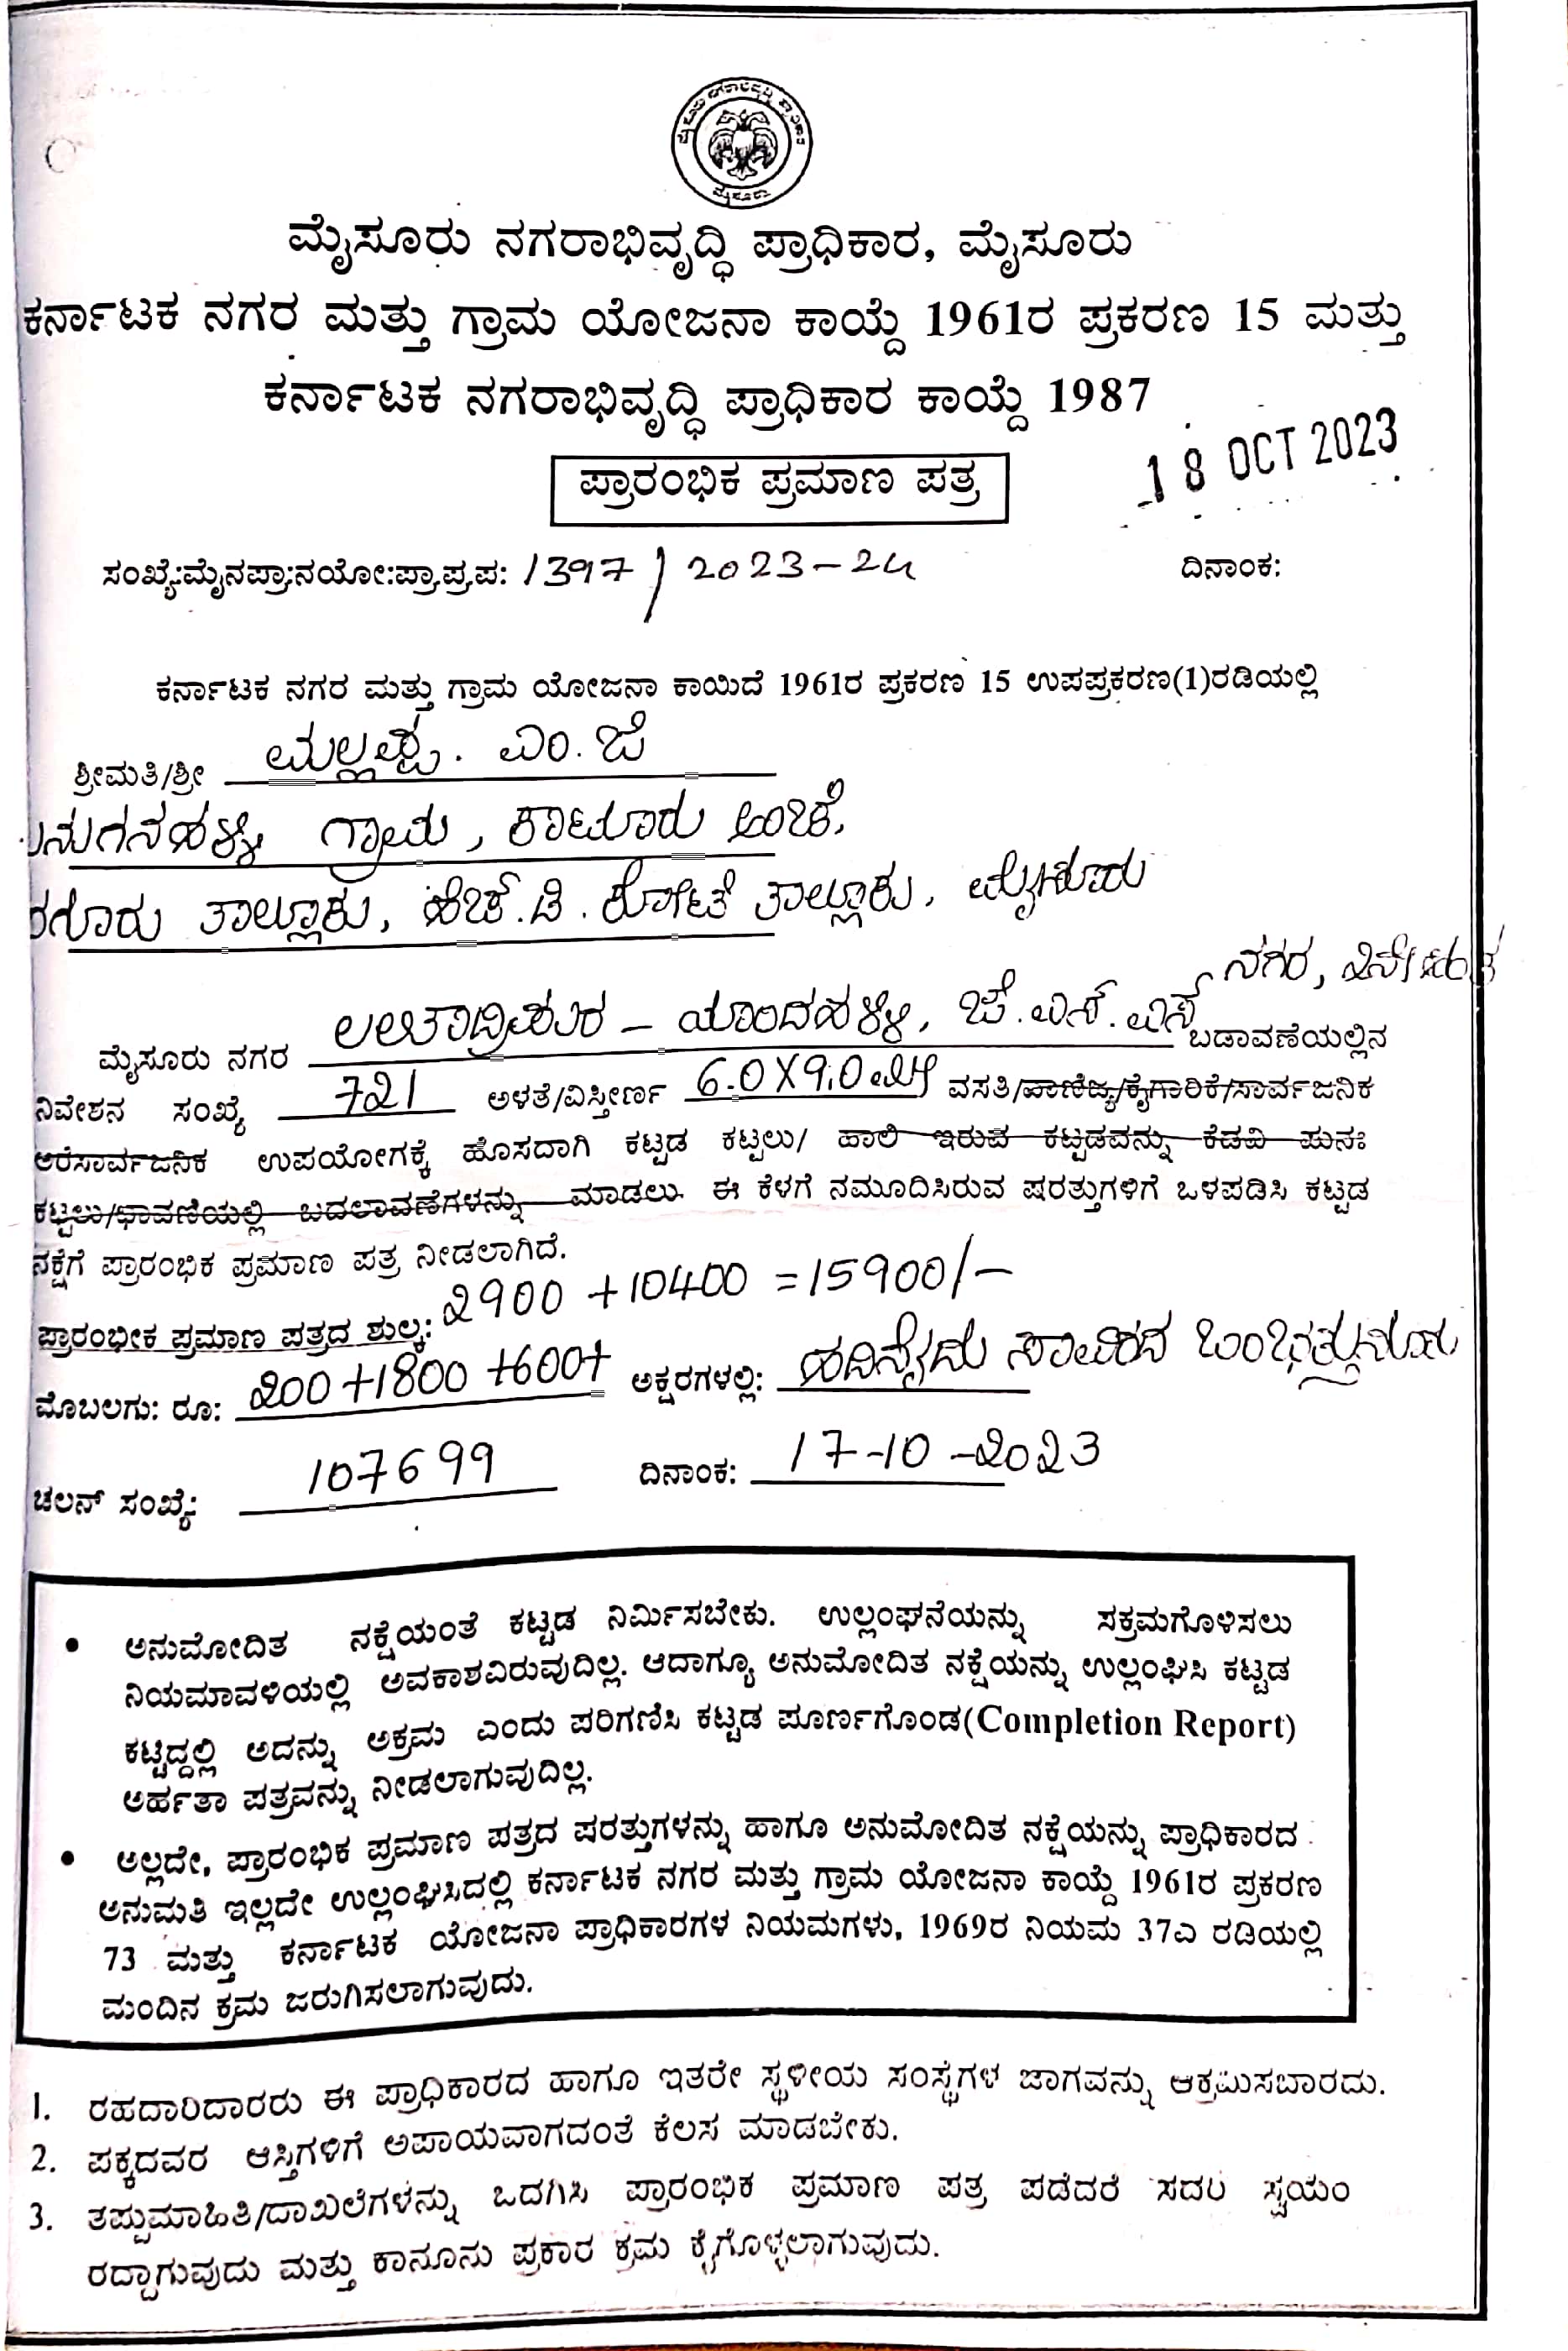 ಮೈಸೂರು
ಮೈಸೂರು ನಗರಾಭಿವೃದ್ಧಿ ಪ್ರಾಧಿಕಾರ, ಮೈಸೂರು
ಕರ್ನಾಟಕ ನಗರ ಮತ್ತು ಗ್ರಾಮ ಯೋಜನಾ ಕಾಯ್ದೆ 1961ರ ಪ್ರಕರಣ 15 ಮತ್ತು
ಕರ್ನಾಟಕ ನಗರಾಭಿವೃದ್ಧಿ ಪ್ರಾಧಿಕಾರ ಕಾಯ್ದೆ 1987
18 OCT 2023
ಪ್ರಾರಂಭಿಕ ಪ್ರಮಾಣ ಪತ್ರ
ಸಂಖ್ಯೆ:ಮೈನಪ್ರಾ:ನಯೋ:ಪ್ರಾ.ಪ್ರ.ಪ: 1397/2023-24 ದಿನಾಂಕ:
ಕರ್ನಾಟಕ ನಗರ ಮತ್ತು ಗ್ರಾಮ ಯೋಜನಾ ಕಾಯಿದೆ 1961ರ ಪ್ರಕರಣ 15 ಉಪಪ್ರಕರಣ(1)ರಡಿಯಲ್ಲಿ
ಶ್ರೀಮತಿ/ಶ್ರೀ ಮಲ್ಲಪ್ಪ. ಎಂ.ಜೆ
ಗ್ರಾಮ, ಅಂಚೆ,
ತಾಲ್ಲೂಕು, ಹೆಚ್.ಡಿ. ಕೋಟೆ ತಾಲ್ಲೂಕು, ಮೈಸೂರು
ಮೈಸೂರು ನಗರ ಲಲಿತಾದ್ರಿಪುರ - ಯಾಂದಹಳ್ಳಿ, ಜೆ.ಎಸ್.ಎಸ್ ನಗರ, ಬಡಾವಣೆಯಲ್ಲಿನ
ನಿವೇಶನ ಸಂಖ್ಯೆ 721 ಅಳತೆ/ವಿಸ್ತೀರ್ಣ 6.0X9.0 ವಸತಿ/ವಾಣಿಜ್ಯ/ಕೈಗಾರಿಕೆ/ಸಾರ್ವಜನಿಕ
ಅರೆಸಾರ್ವಜನಿಕ ಉಪಯೋಗಕ್ಕೆ ಹೊಸದಾಗಿ ಕಟ್ಟಡ ಕಟ್ಟಲು/ ಹಾಲಿ ಇರುವ ಕಟ್ಟಡವನ್ನು ಕೆಡವಿ ಪುನಃ
ಕಟ್ಟಲು/ಛಾವಣಿಯಲ್ಲಿ ಬದಲಾವಣೆಗಳನ್ನು ಮಾಡಲು ಈ ಕೆಳಗೆ ನಮೂದಿಸಿರುವ ಷರತ್ತುಗಳಿಗೆ ಒಳಪಡಿಸಿ ಕಟ್ಟಡ
ನಕ್ಷೆಗೆ ಪ್ರಾರಂಭಿಕ ಪ್ರಮಾಣ ಪತ್ರ ನೀಡಲಾಗಿದೆ.
ಪ್ರಾರಂಭೀಕ ಪ್ರಮಾಣ ಪತ್ರದ ಶುಲ್ಕ: 2900 +10400 =15900/-
ಮೊಬಲಗು: ರೂ: 200+1800 +600+ ಅಕ್ಷರಗಳಲ್ಲಿ: ಹದಿನೈದು ಸಾವಿರದ ಒಂಭತ್ತುನೂರು
ಚಲನ್ ಸಂಖ್ಯೆ: 107699 ದಿನಾಂಕ: 17-10-2023
• ಅನುಮೋದಿತ ನಕ್ಷೆಯಂತೆ ಕಟ್ಟಡ ನಿರ್ಮಿಸಬೇಕು. ಉಲ್ಲಂಘನೆಯನ್ನು ಸಕ್ರಮಗೊಳಿಸಲು
ನಿಯಮಾವಳಿಯಲ್ಲಿ ಅವಕಾಶವಿರುವುದಿಲ್ಲ. ಆದಾಗ್ಯೂ ಅನುಮೋದಿತ ನಕ್ಷೆಯನ್ನು ಉಲ್ಲಂಘಿಸಿ ಕಟ್ಟಡ
ಕಟ್ಟಿದ್ದಲ್ಲಿ ಅದನ್ನು ಅಕ್ರಮ ಎಂದು ಪರಿಗಣಿಸಿ ಕಟ್ಟಡ ಪೂರ್ಣಗೊಂಡ(Completion Report)
ಅರ್ಹತಾ ಪತ್ರವನ್ನು ನೀಡಲಾಗುವುದಿಲ್ಲ.
• ಅಲ್ಲದೇ, ಪ್ರಾರಂಭಿಕ ಪ್ರಮಾಣ ಪತ್ರದ ಷರತ್ತುಗಳನ್ನು ಹಾಗೂ ಅನುಮೋದಿತ ನಕ್ಷೆಯನ್ನು ಪ್ರಾಧಿಕಾರದ
ಅನುಮತಿ ಇಲ್ಲದೇ ಉಲ್ಲಂಘಿಸಿದಲ್ಲಿ ಕರ್ನಾಟಕ ನಗರ ಮತ್ತು ಗ್ರಾಮ ಯೋಜನಾ ಕಾಯ್ದೆ 1961ರ ಪ್ರಕರಣ
73 ಮತ್ತು ಕರ್ನಾಟಕ ಯೋಜನಾ ಪ್ರಾಧಿಕಾರಗಳ ನಿಯಮಗಳು, 1969ರ ನಿಯಮ 37ಎ ರಡಿಯಲ್ಲಿ
ಮಂದಿನ ಕ್ರಮ ಜರುಗಿಸಲಾಗುವುದು.
1. ರಹದಾರಿದಾರರು ಈ ಪ್ರಾಧಿಕಾರದ ಹಾಗೂ ಇತರೇ ಸ್ಥಳೀಯ ಸಂಸ್ಥೆಗಳ ಜಾಗವನ್ನು ಆಕ್ರಮಿಸಬಾರದು.
2. ಪಕ್ಕದವರ ಆಸ್ತಿಗಳಿಗೆ ಅಪಾಯವಾಗದಂತೆ ಕೆಲಸ ಮಾಡಬೇಕು.
3. ತಪ್ಪುಮಾಹಿತಿ/ದಾಖಲೆಗಳನ್ನು ಒದಗಿಸಿ ಪ್ರಾರಂಭಿಕ ಪ್ರಮಾಣ ಪತ್ರ ಪಡೆದರೆ ಸದರಿ ಸ್ವಯಂ
ರದ್ದಾಗುವುದು ಮತ್ತು ಕಾನೂನು ಪ್ರಕಾರ ಕ್ರಮ ಕೈಗೊಳ್ಳಲಾಗುವುದು.